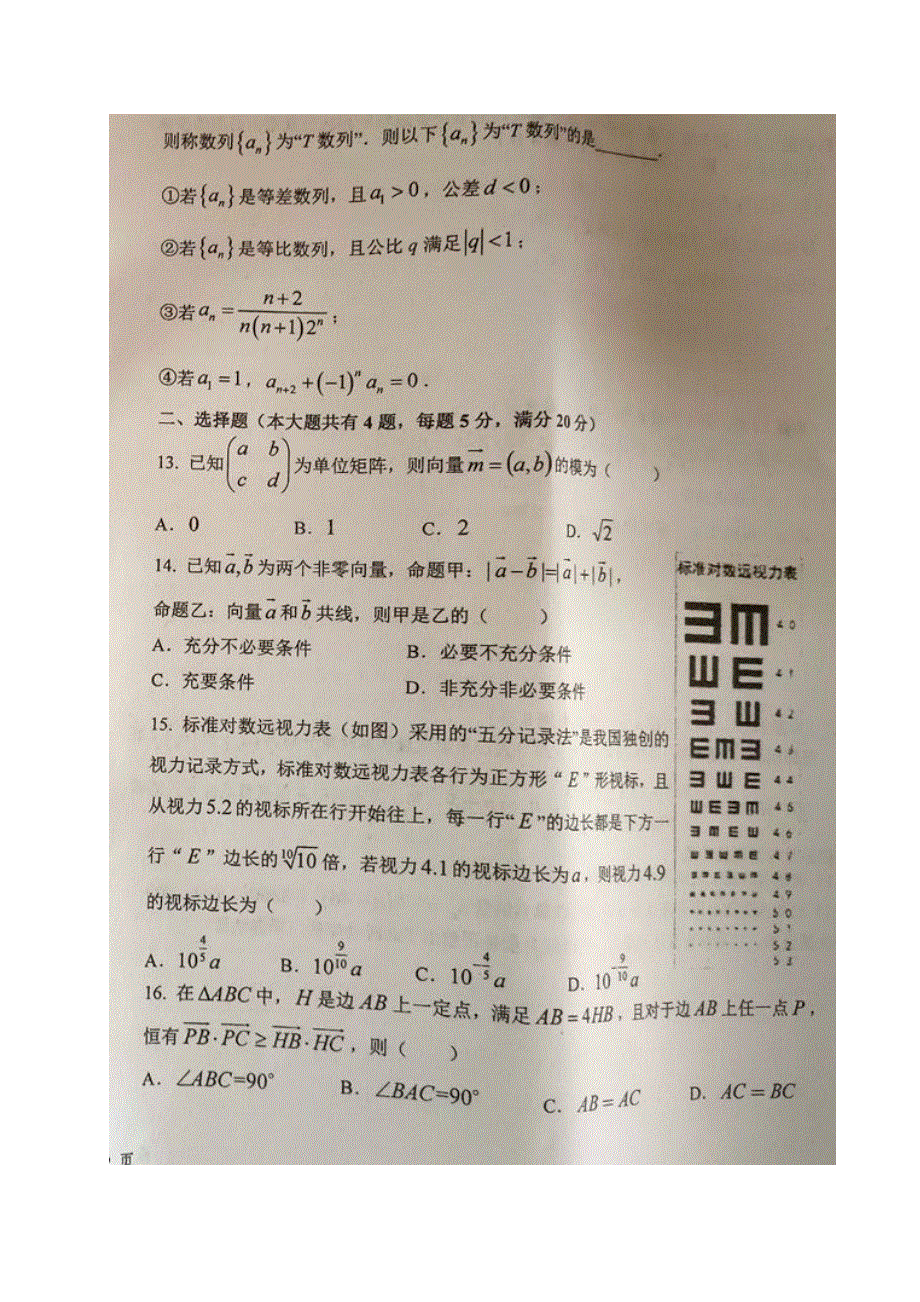 则称数列{aₙ}为“T数列”．则以下{aₙ}为“T数列”的是______．
①若{aₙ}是等差数列，且a₁>0，公差d<0；
②若{aₙ}是等比数列，且公比q满足|q|<1；
③若aₙ=(n+2)/(n(n+1)2ⁿ)；
④若a₁=1，aₙ₊₂+(−1)ⁿaₙ=0．
二、选择题（本大题共有4题，每题5分，满分20分）
13. 已知(a b; c d)为单位矩阵，则向量m⃗=(a,b)的模为（　　）
A．0　B．1　C．2　D．√2
14. 已知a⃗,b⃗为两个非零向量，命题甲：|a⃗−b⃗|=|a⃗|+|b⃗|，
命题乙：向量a⃗和b⃗共线，则甲是乙的（　　）
A．充分不必要条件　B．必要不充分条件
C．充要条件　D．非充分非必要条件
15. 标准对数远视力表（如图）采用的“五分记录法”是我国独创的
视力记录方式，标准对数远视力表各行为正方形“E”形视标，且
从视力5.2的视标所在行开始往上，每一行“E”的边长都是下方一
行“E”边长的¹⁰√10倍，若视力4.1的视标边长为a，则视力4.9
的视标边长为（　　）
A．10^(4/5)a　B．10^(9/10)a　C．10^(−4/5)a　D．10^(−9/10)a
16. 在ΔABC中，H是边AB上一定点，满足AB=4HB，且对于边AB上任一点P，
恒有PB⃗·PC⃗≥HB⃗·HC⃗，则（　　）
A．∠ABC=90°　B．∠BAC=90°　C．AB=AC　D．AC=BC
标准对数远视力表
4.0
4.1
4.2
4.3
4.4
4.5
4.6
4.7
4.8
4.9
5.0
5.1
5.2
5.3
页